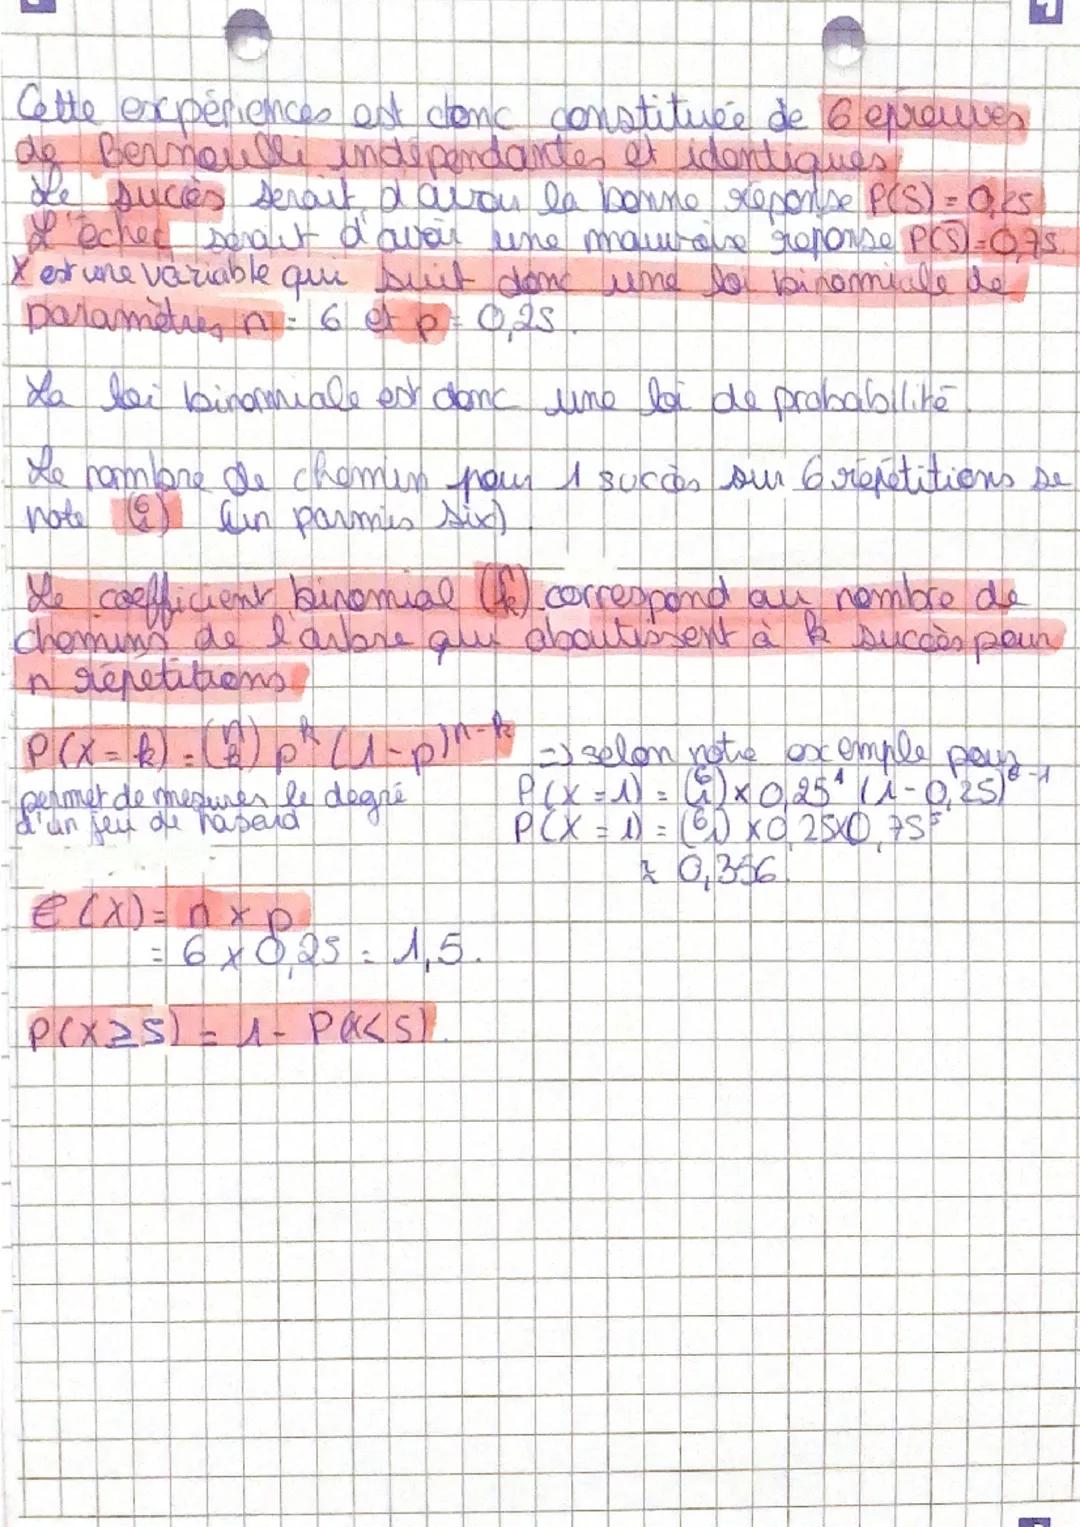 Cette expériences est donc constituée de 6 epreuves
de Bernoulli indépendantes et identiques
Le succès serait d'avoir la bonne réponse P(S) = 0,25
L'échec serait d'avoir une mauvaise réponse P(S̅) = 0,75
X est une variable qui suit donc une loi binomiale de
paramètres n = 6 et p = 0,25.
La loi binomiale est donc une loi de probabilité.
Le nombre de chemin pour 1 succès sur 6 répétitions se
note (6 1) (un parmis six)
Le coefficient binomial (n k) correspond au nombre de
chemins de l'arbre qui aboutissent à k succès pour
n répétitions
P(X = k) = (n k) p^k (1-p)^n-k => selon notre exemple pour
permet de mesurer le degré
d'un jeu de hasard
P(X = 1) = (6 1) x 0,25^1 (1-0,25)^6-1
P(X = 1) = (6 1) x 0,25x0,75^5
≈ 0,356
E(X) = n x p
= 6 x 0,25 = 1,5.
P(X ≥ 5) = 1 - P(X < 5).